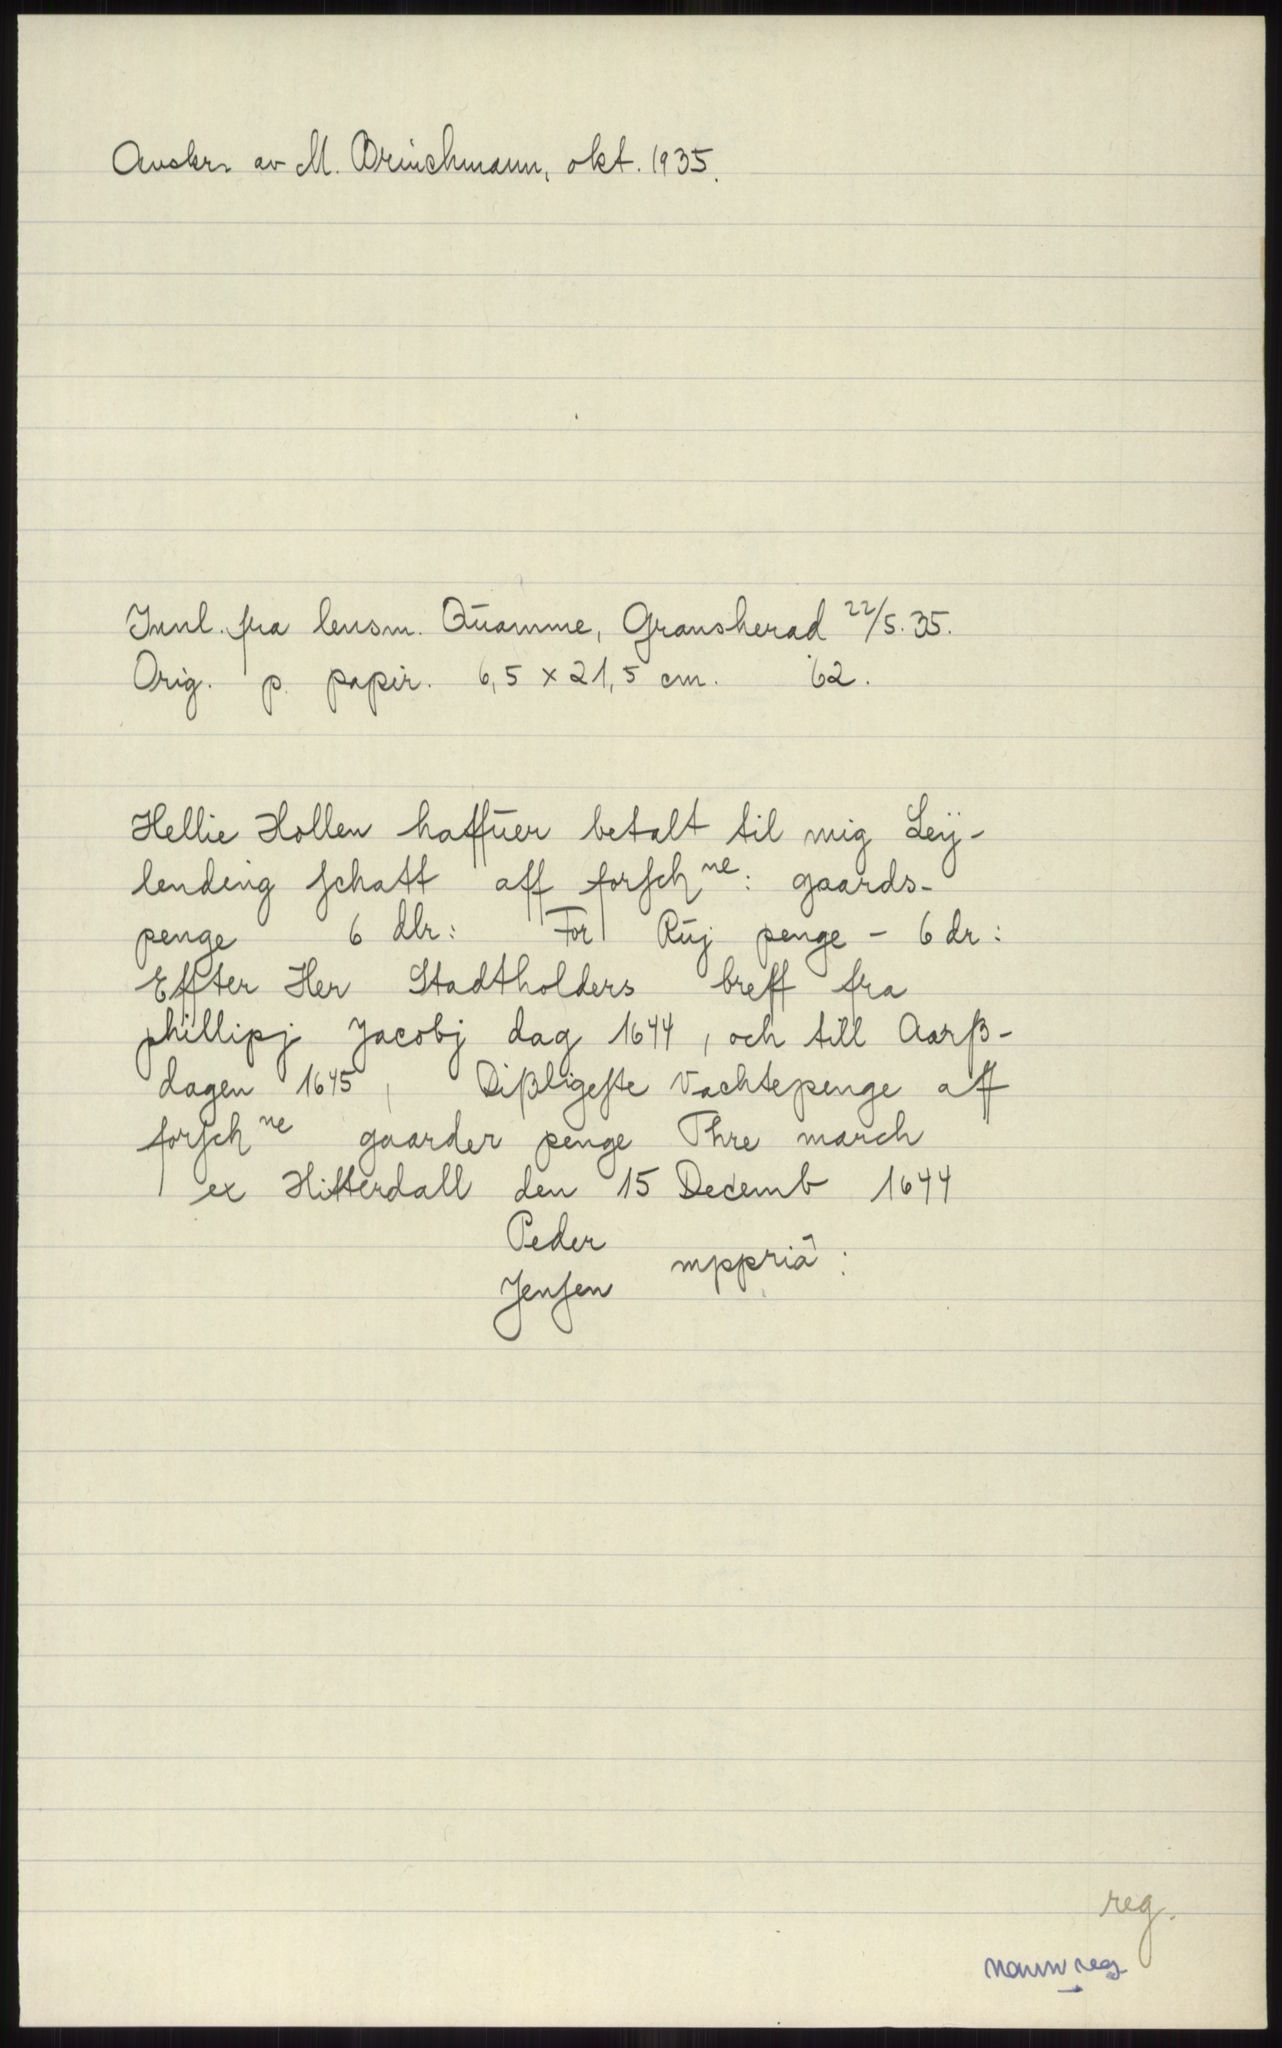 Avskr. av M. Brinchmann, okt. 1935.
Innl. fra lensm. Quamme, Gransherad 22/5.35.
Orig. p. papir. 6,5 x 21,5 cm. 62.
Hellie Hollen haffuer betalt til mig Leÿ-
lending schatt aff forsch ne: gaards-
penge 6 dlr: For Ruj penge - 6 dr:
Effter Her Stadtholders breff fra
phillipj Jacobj dag 1644, och till Aarß-
dagen 1645, Dißligeste Vachtepenge aff
forsch ne gaarder penge Thre march
ex Hitterdall den 15 Decemb 1644
Peder
Jensen mppriâ:
reg.
navnreg